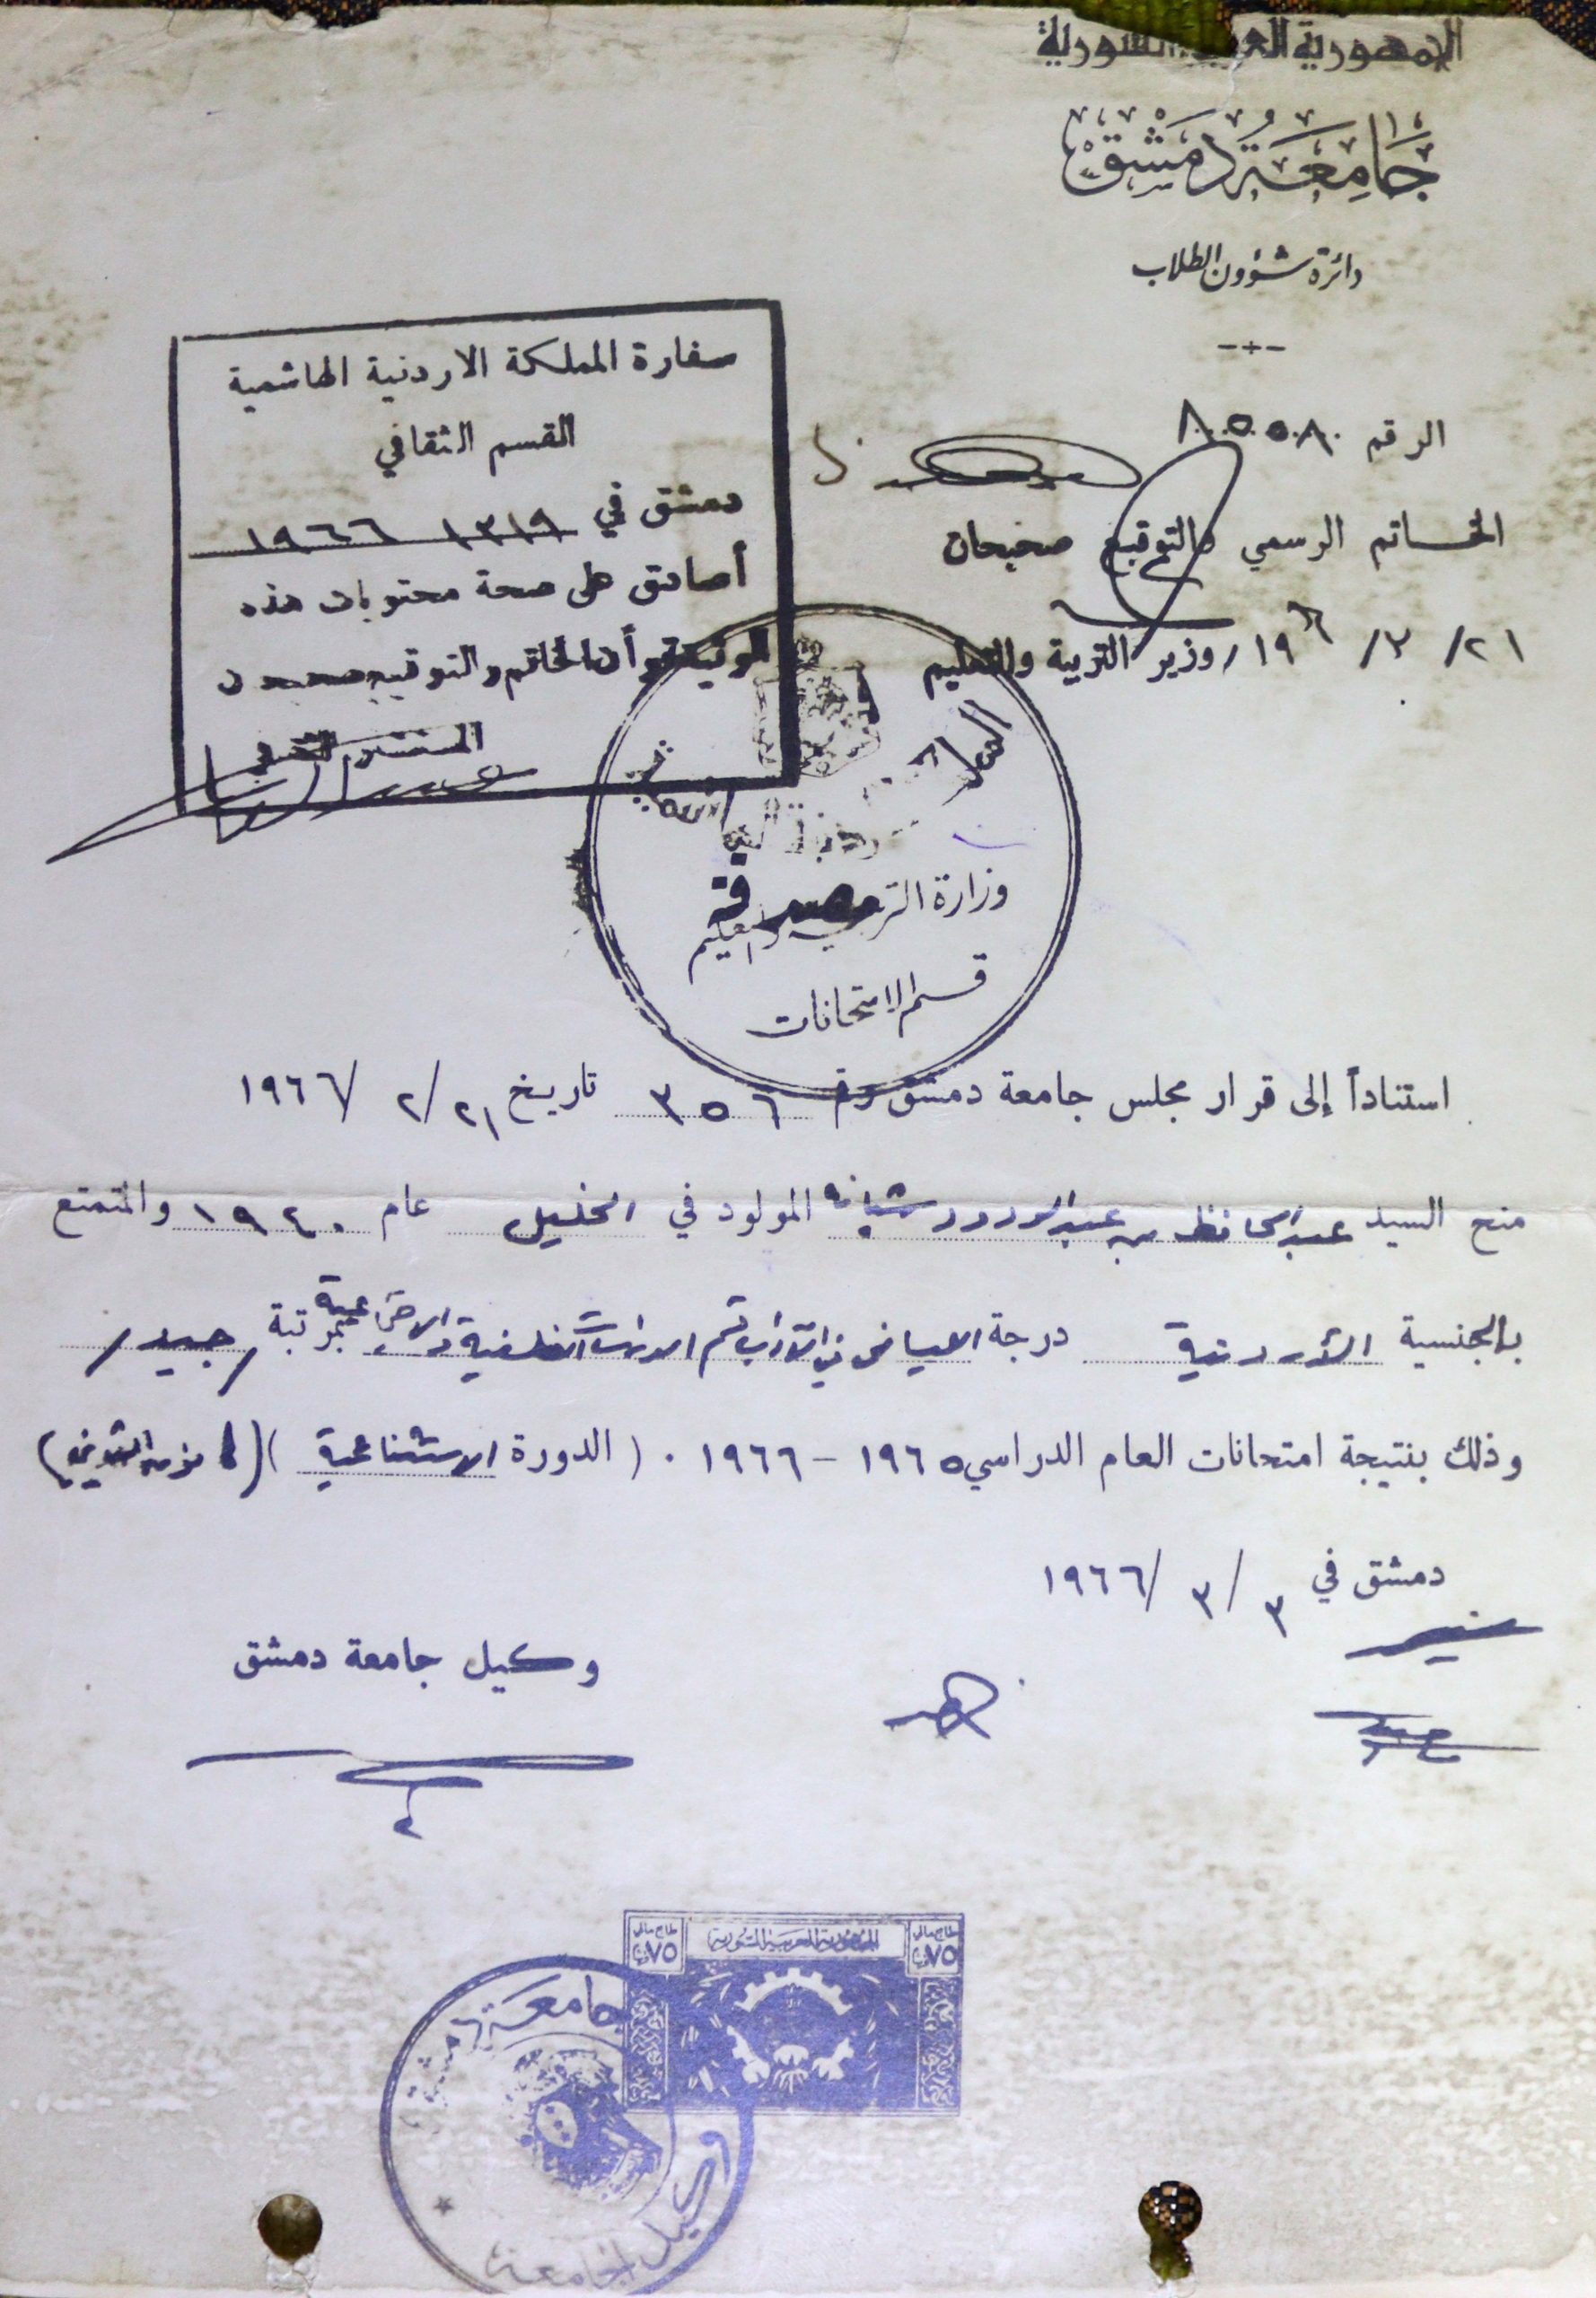 الجمهورية العربية السورية
جامعة دمشق
دائرة شؤون الطلاب
الرقم
سفارة المملكة الاردنية الهاشمية
القسم الثقافي
دمشق في ١٣١٩ ١٩٦٦
أصادق على صحة محتويات هذه
الوثيقة وأن الخاتم والتوقيع
المستشار الثقافي
الخاتم الرسمي والتوقيع صحيحان
٢١ / ٣ / ١٩٦٦ وزير التربية والتعليم
وزارة التربية والتعليم
مصدقة
قسم الامتحانات
استناداً إلى قرار مجلس جامعة دمشق رقم ٣٥٦ تاريخ ٢١/ ٢ /١٩٦٦
منح السيد عبد الحافظ بن عبد الودود شبانه المولود في الخليل عام ١٩٤٠ والمتمتع
بالجنسية الأردنية درجة الليسانس في الآداب قسم الدراسات الفلسفية والاجتماعية بمرتبة /جيد/
وذلك بنتيجة امتحانات العام الدراسي ١٩٦٥ - ١٩٦٦ . ( الدورة الاستثنائية )
دمشق في ٣ / ٣ /١٩٦٦
وكيل جامعة دمشق
الجمهورية العربية السورية
طابع مالي
٧٥
طابع مالي
٧٥
جامعة دمشق
وكيل الجامعة